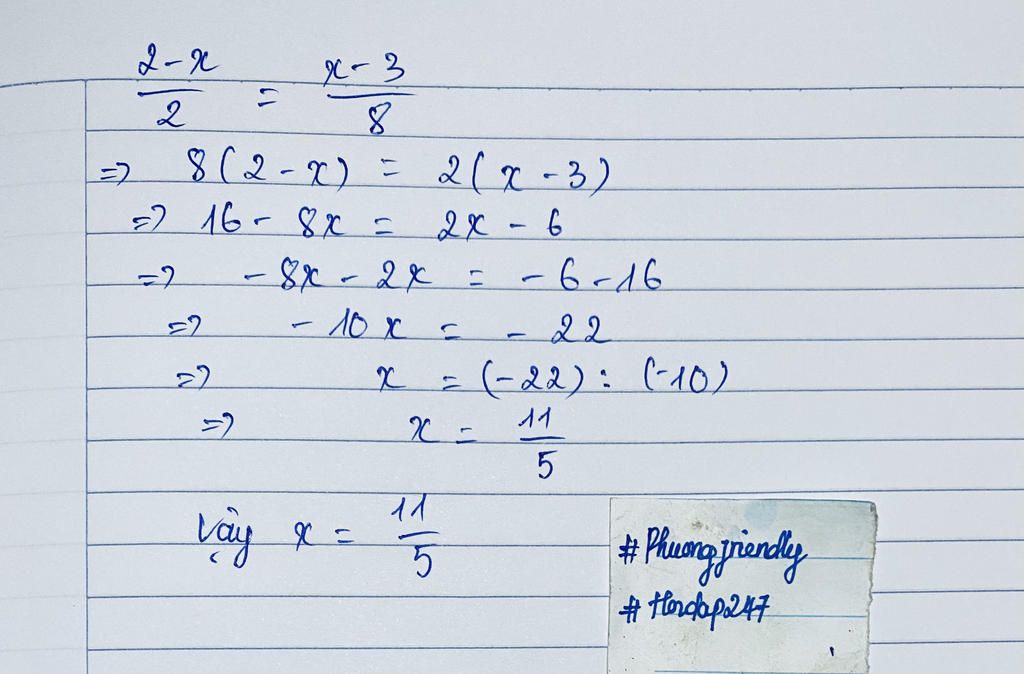 2-x/2 = x-3/8
=> 8(2-x) = 2(x-3)
=> 16-8x = 2x-6
=> -8x-2x = -6-16
=> -10x = -22
=> x = (-22) : (-10)
=> x = 11/5
Vậy x = 11/5
# Phuongfriendly
# Hoidap247